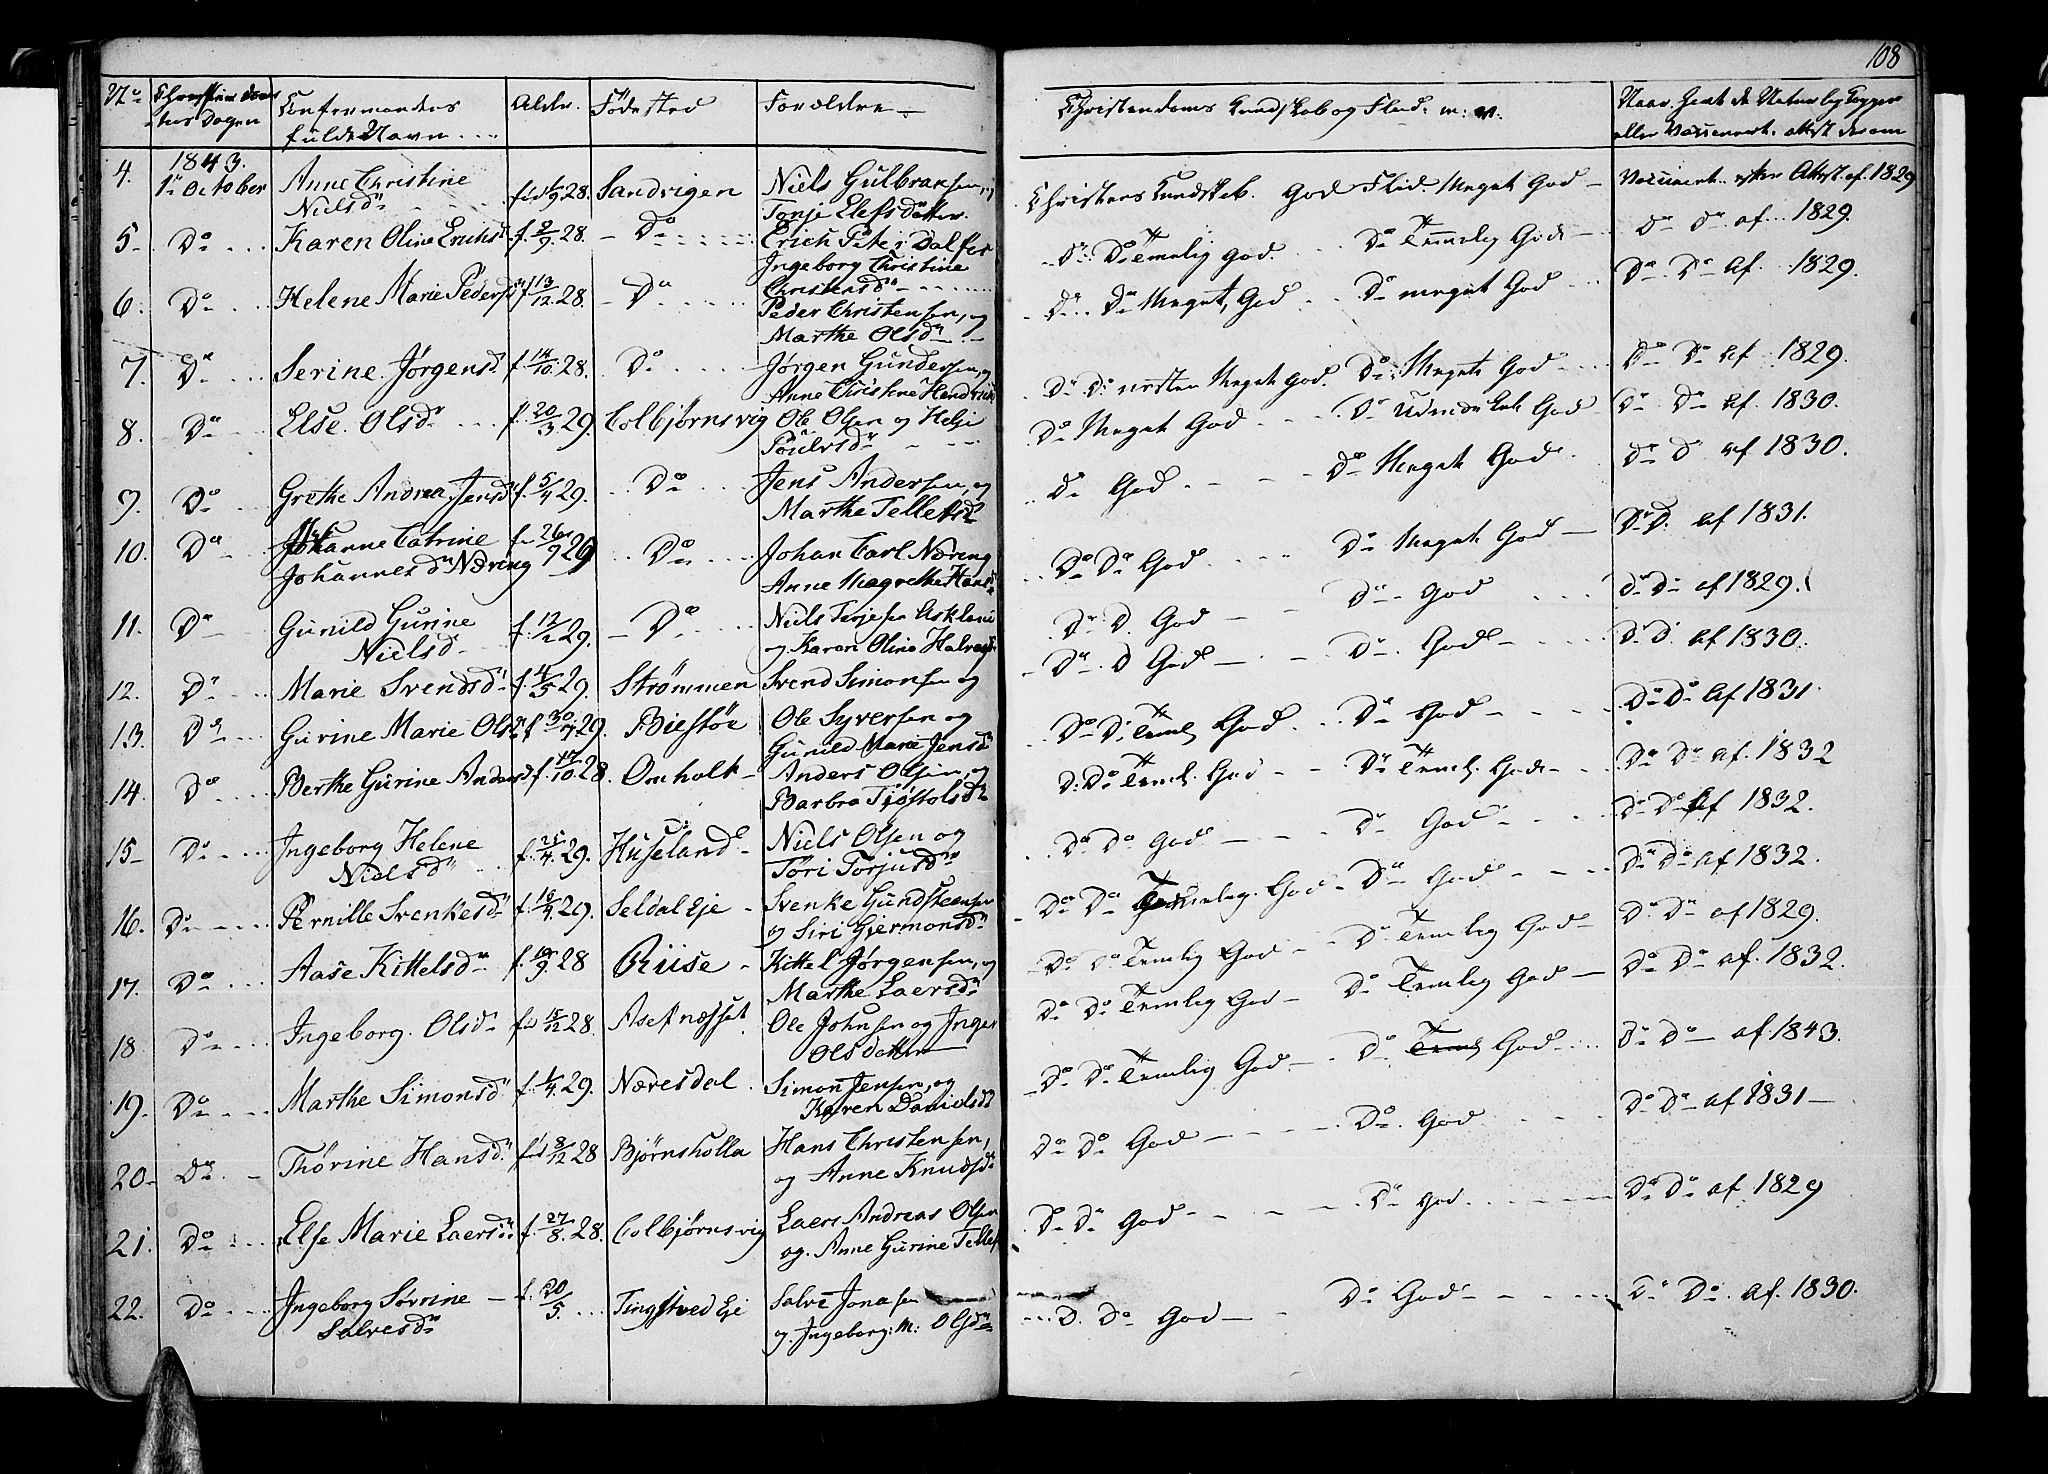 108
No
Confirmandens
fulde Navn
Alder.
Fødested
Forældre
Christendoms Kundskab og Flid. m: v.
4.
1843.
1ste October
Anne Christine
Nielsdr
28.
Sandvigen
Niels Gulbransen,
Tonje Elefsdatter.
Christens Kundskab. God Flid. Meget God
Vaccineret efter Attest af. 1829
5
Do
Karen Oline Erichsd
f. 2/9. 28.
Do
Erich Peter Dalfer
Ingeborg Christine
Christensdr
Do Do Temelig God.
Do Temelig God
Do Do af 1829.
6.
Do
Helene Marie Pedersd
f 13/12 28.
Do
Peder Christensen, og
Marthe Olsdr
Do Do Meget, God
Do meget God
Do Do Af. 1829.
7.
Do
Serine Jørgensd
f 14/10 28.
Do
Jørgen Gundersen, og
Anne Christine Hendrich
Do Do næsten Meget God.
Do Meget God
Do Do af 1829.
8.
Do
Else Olsdr
f. 20/3 29.
Colbjørnsvig
Ole Olsen og Helje
Poulsdr
Do Meget God
Do God
Do Do af 1830.
9.
Do
Grethe Andrea Jensd
f. 5/4 29.
Do
Jens Andersen, og
Marthe Tellefsd
Do God
Do Meget God
Do D af 1830.
10.
Do
Johanne Catrine
Johannesdr Næring
26/7 29
Do
Johan Carl Næring
Anne Magrethe Hans
Do Do God
Do Meget God
Do D. af 1831.
11.
Do
Gunild Gurine
Nielsd
29.
Do
Niels Terjesen Asklene
og Karen Oline Halvors
Do D. God
Do God
Do Do af 1829.
12.
Do
Marie Svendsd
29.
Strømmen
Svend Simonsen og
Do D God
Do God
Do D. af 1830.
13.
Do
Gurine Marie Olsd
f 30/7 29.
Biestøe
Ole Syversen og
Gunild Marie Jensd
Do D. Teml God.
Do God
Do Do Af 1831.
14.
Do
Berthe Gurine Andersd
f 17/10 28.
Omholt
Anders Olsen, og
Barbro Tjøstolsd
D. Do Teml. God
Do Teml. God
Do Do af. 1832
15
Do
Ingeborg Helene
Nielsdr
f. 25/4. 29.
Huseland
Niels Olsen og
Tøri Torjusdr
Do Do God
Do God
Do Do Af 1832.
16.
Do
Pernille Svenkesdr
29.
Seldal Eje
Svenke Gundstensen
og Siri Gjermonsdr
Do Do Temelig. God
Do God
Do Do Af 1832.
17.
Do
Aase Kittelsdr
28
Riise
Kittel Jørgensen, og
Marthe Laersdr
Do Do Temlig God
Do Temlig God
Do Do af 1829.
18
Do
Ingeborg. Olsdr
28.
Asefnæsset
Ole Johnsen og Inger
Olsdatter
Do Do Temlig God
Do Temlig God
Do Do af. 1832.
19.
Do
Marthe Simonsd
f. 1/4. 29.
Næresdal
Simon Jensen, og
Karen Danielsd
Do Do Temlig God
Do Teml God
Do Do af 1843.
20
Do
Thørine Hansd
8/12 28
Bjørnsholla
Hans Christensen,
og Anne Knudsd
Do Do God
Do God
Do Do af 1831
21.
Do
Else Marie Laersdr
f. 27/8. 28.
Colbjørnsvig
Laers Andreas Olsen
og. Anne Gurine Tellef
Do Do God
Do God
Do Do af 1829
22.
Do
Ingeborg Sørine
Salvesdr
f. 20/5.
Tingstved Eje
Salve Jonasen
og. Ingeborg: M: Olsdr
D. Do God
Do God
Do Do. af. 1830.